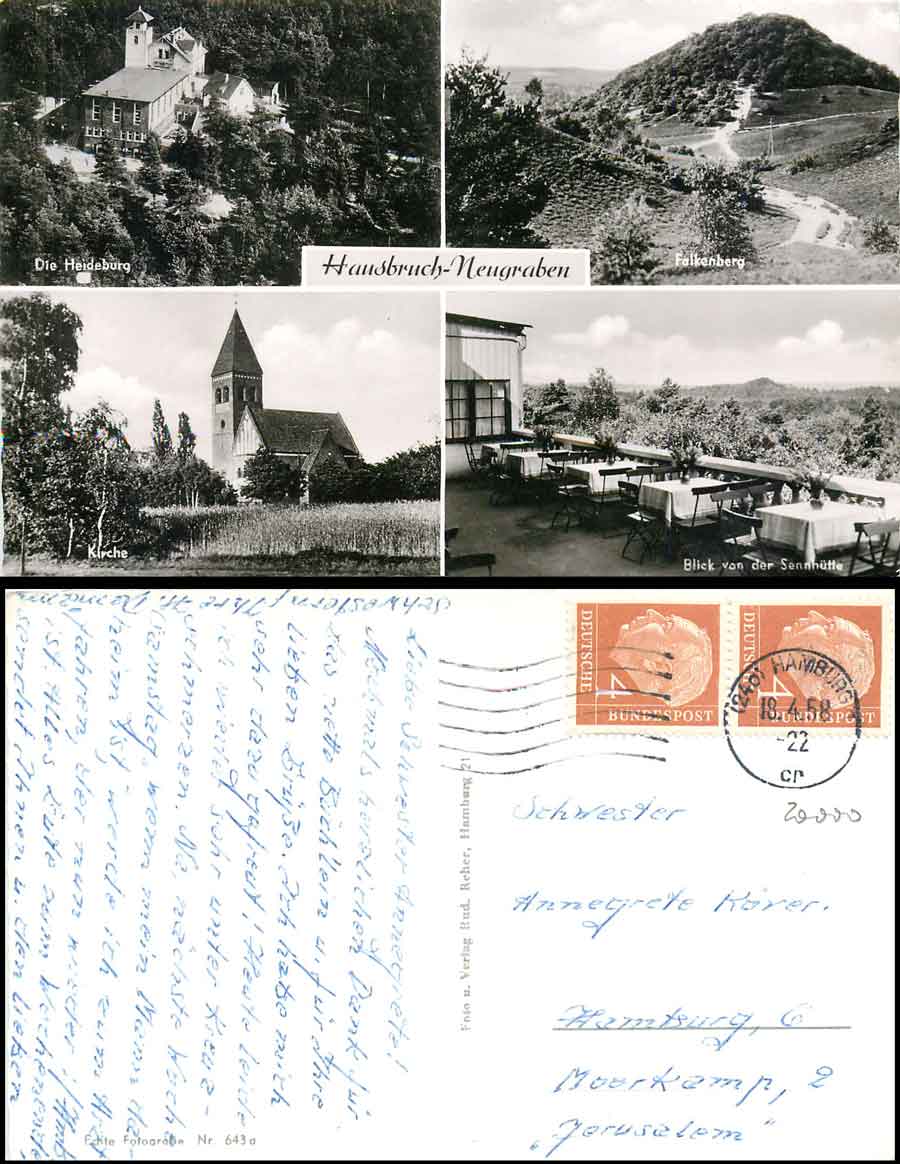 Die Heideburg
Falkenberg
Hausbruch-Neugraben
Kirche
Blick von der Sennhütte
Liebe Schwester Annegrete!
Nochmals herzlichen Dank für
das nette Büchlein u. für Ihre
lieben Grüße. Ich habe mich
sehr dazu gefreut! Heute leide
ich wieder sehr unter Kreuz-
schmerzen. Na, nächste Woche
Dienstag, wenn mein Mann da-
heim ist, werde ich zum Arzt
fahren, der nun wieder
ist. Alles Gute zum Wochenende
sendet Ihnen u. den lieben
Schwestern, Ihre Fr.
DEUTSCHE
4
BUNDESPOST
DEUTSCHE
4
BUNDESPOST
(24a) HAMBURG
18.4.58
-22
cp
Schwester
20000
Annegrete Körer.
Hamburg, 6
Moorkamp, 2
„Jerusalem"
Foto u. Verlag Rud. Reher, Hamburg 21
Echte Fotografie Nr. 643a